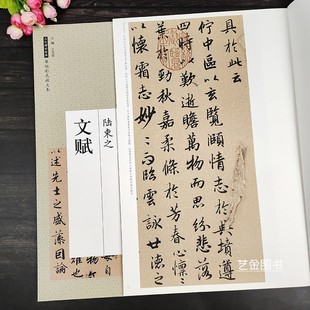 陆柬之
文赋
以述先士之盛藻因論
具於此云
佇中區以玄覽頤情志於典墳遵
四時以歎逝瞻萬物而思紛悲落
葉於勁秋嘉柔條於芳春心懍〻
以懷霜志眇〻而臨雲詠世德之
艺金图书